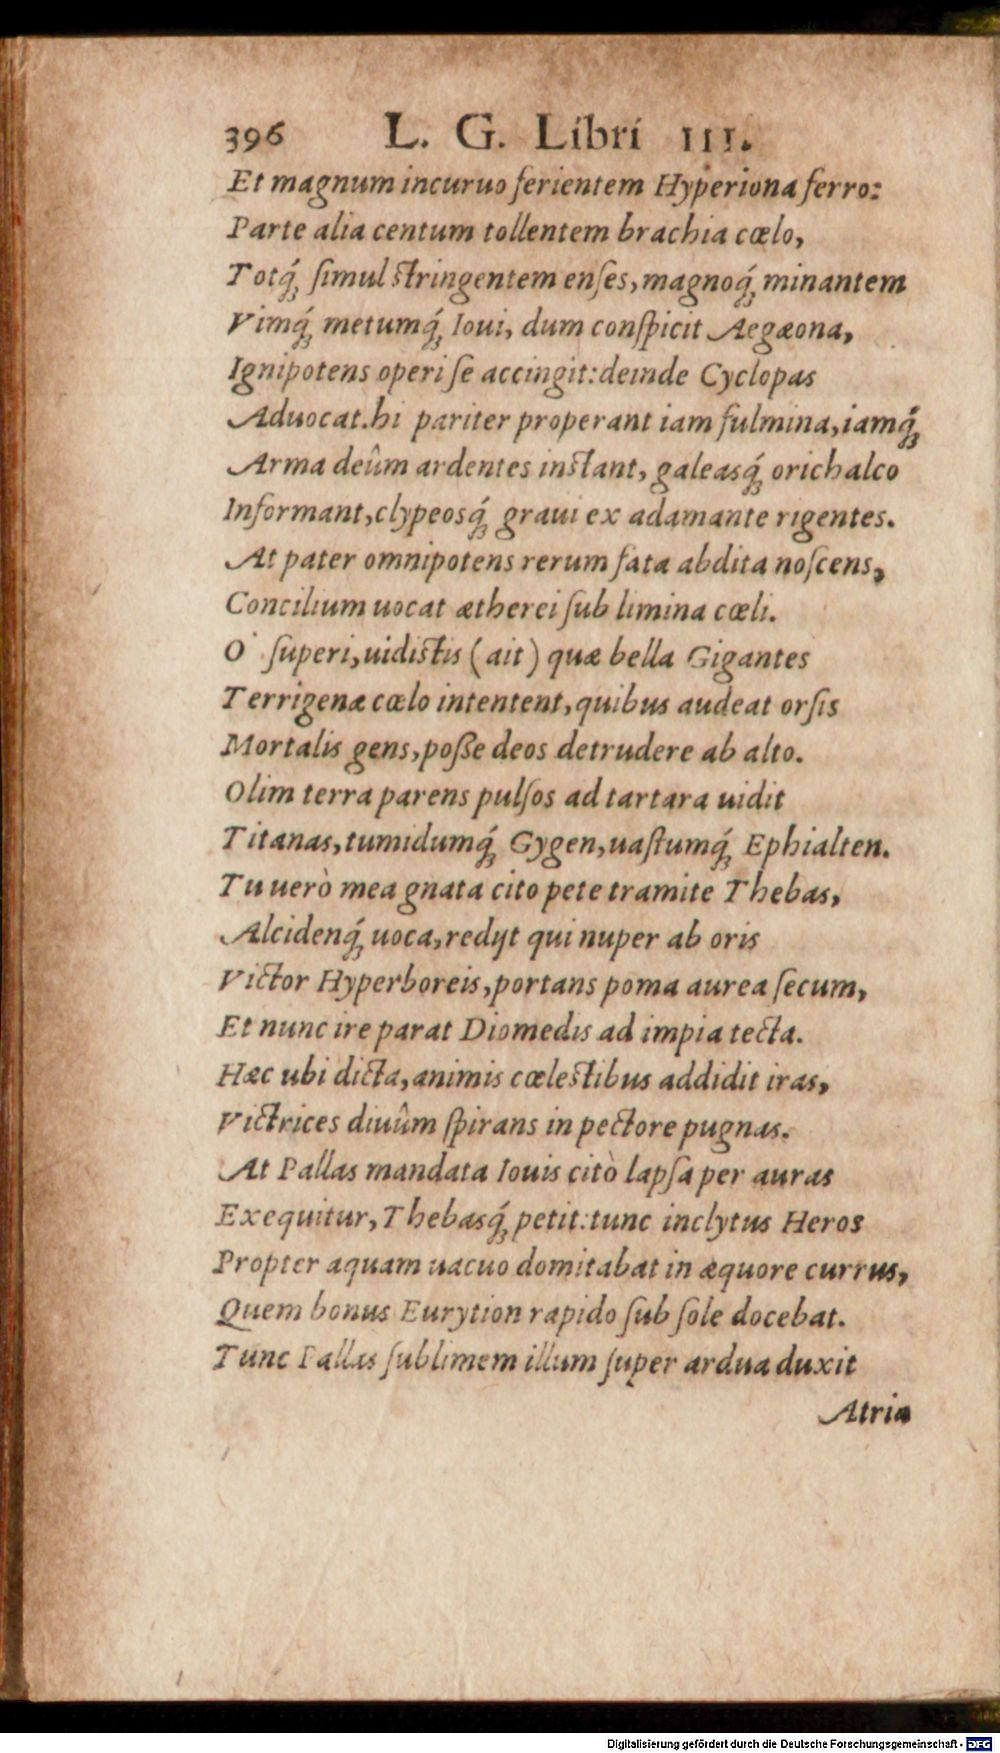 396 L. G. Libri III.
Et magnum incuruo ferientem Hyperiona ferro:
Parte alia centum tollentem brachia cœlo,
Totq́; ſimul ſtringentem enſes, magnoq́; minantem
Vimq́; metumq́; Ioui, dum conſpicit Aegæona,
Ignipotens operi ſe accingit: deinde Cyclopas
Aduocat. hi pariter properant iam fulmina, iamq́;
Arma deûm ardentes inſtant, galeasq́; orichalco
Informant, clypeosq́; graui ex adamante rigentes.
At pater omnipotens rerum fata abdita noſcens,
Concilium uocat ætherei ſub limina cœli.
O' ſuperi, uidiſtis (ait) quæ bella Gigantes
Terrigenæ cœlo intentent, quibus audeat orſis
Mortalis gens, poſſe deos detrudere ab alto.
Olim terra parens pulſos ad tartara uidit
Titanas, tumidumq́; Gygen, uaſtumq́; Ephialten.
Tu uerò mea gnata cito pete tramite Thebas,
Alcidenq́; uoca, redijt qui nuper ab oris
Victor Hyperboreis, portans poma aurea ſecum,
Et nunc ire parat Diomedis ad impia tecta.
Hæc ubi dicta, animis cœleſtibus addidit iras,
Victrices diuûm ſpirans in pectore pugnas.
At Pallas mandata Iouis citò lapſa per auras
Exequitur, Thebasq́; petit: tunc inclytus Heros
Propter aquam uacuo domitabat in æquore currus,
Quem bonus Eurytion rapido ſub ſole docebat.
Tunc Pallas ſublimem illum ſuper ardua duxit
Atria
Digitalisierung gefördert durch die Deutsche Forschungsgemeinschaft - DFG